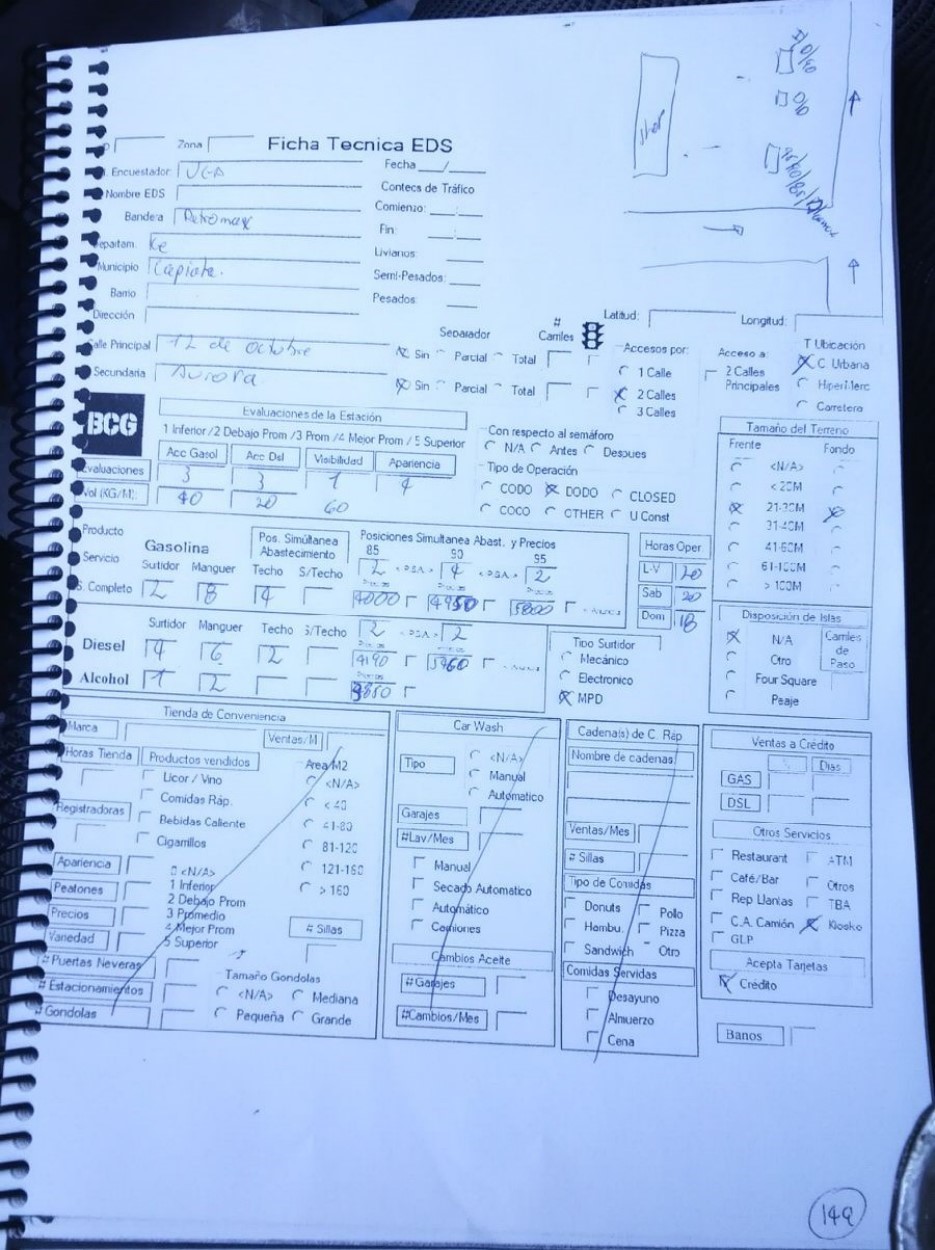 Zona
Ficha Tecnica EDS
Encuestador JCA
Fecha / 
Nombre EDS
Contecs de Tráfico
Bandera Petromax
Comienzo: :
Fin: :
Departam. Ke
Livianos:
Municipio Capiata.
Semi-Pesados:
Barrio
Pesados:
Dirección
Latitud: Longitud:
Calle Principal 12 de octubre
Separador # Carriles
Sin Parcial Total
Secundaria Aurora
Sin Parcial Total
Accesos por:
1 Calle
2 Calles
3 Calles
Acceso a:
2 Calles
Principales
T Ubicación
C. Urbana
HiperMerc
Carretera
BCG
Evaluaciones de la Estación
1 Inferior /2 Debajo Prom /3 Prom /4 Mejor Prom / 5 Superior
Acc Gasol Acc Dsl Visibilidad Apariencia
Evaluaciones 3 3 1 4
Vol (KG/M): 40 20 60
Con respecto al semáforo
N/A Antes Despues
Tipo de Operación
CODO DODO CLOSED
COCO OTHER U Const
Tamaño del Terreno
Frente Fondo
<N/A>
< 20M
21-30M
31-40M
41-60M
61-100M
> 100M
Producto
Servicio
Gasolina
Pos. Simúltanea
Abastecimiento
Posiciones Simultanea Abast. y Precios
85 90 95
Surtidor Manguer Techo S/Techo 2 4 2
S. Completo 2 8 4 4000 4950 5800
Horas Oper
L-V 20
Sab 20
Dom 18
Surtidor Manguer Techo S/Techo 2 2
Diesel 4 6 2 4190 5960
Alcohol 1 2 3850
Tipo Surtidor
Mecánico
Electronico
MPD
Disposición de Islas
N/A
Otro
Four Square
Peaje
Carriles
de
Paso
Tienda de Conveniencia
Marca Ventas/M
Horas Tienda Productos vendidos
Licor / Vino
Comidas Ráp.
Bebidas Caliente
Cigarrillos
Registradoras
Area M2
<N/A>
< 40
41-80
81-120
121-160
> 160
Apariencia
Peatones
Precios
Variedad
0 <N/A>
1 Inferior
2 Debajo Prom
3 Promedio
4 Mejor Prom
5 Superior
# Sillas
# Puertas Neveras
# Estacionamientos
# Gondolas
Tamaño Gondolas
<N/A> Mediana
Pequeña Grande
Car Wash
Tipo
<N/A>
Manual
Automatico
Garajes
#Lav/Mes
Manual
Secado Automatico
Automático
Camiones
Cambios Aceite
#Garajes
#Cambios/Mes
Cadena(s) de C. Ráp
Nombre de cadenas
Ventas/Mes
# Sillas
Tipo de Comidas
Donuts Pollo
Hambu. Pizza
Sandwich Otro
Comidas Servidas
Desayuno
Almuerzo
Cena
Ventas a Crédito
Dias
GAS
DSL
Otros Servicios
Restaurant ATM
Café/Bar Otros
Rep Llantas TBA
C.A. Camión Kiosko
GLP
Acepta Tarjetas
Crédito
Banos
149